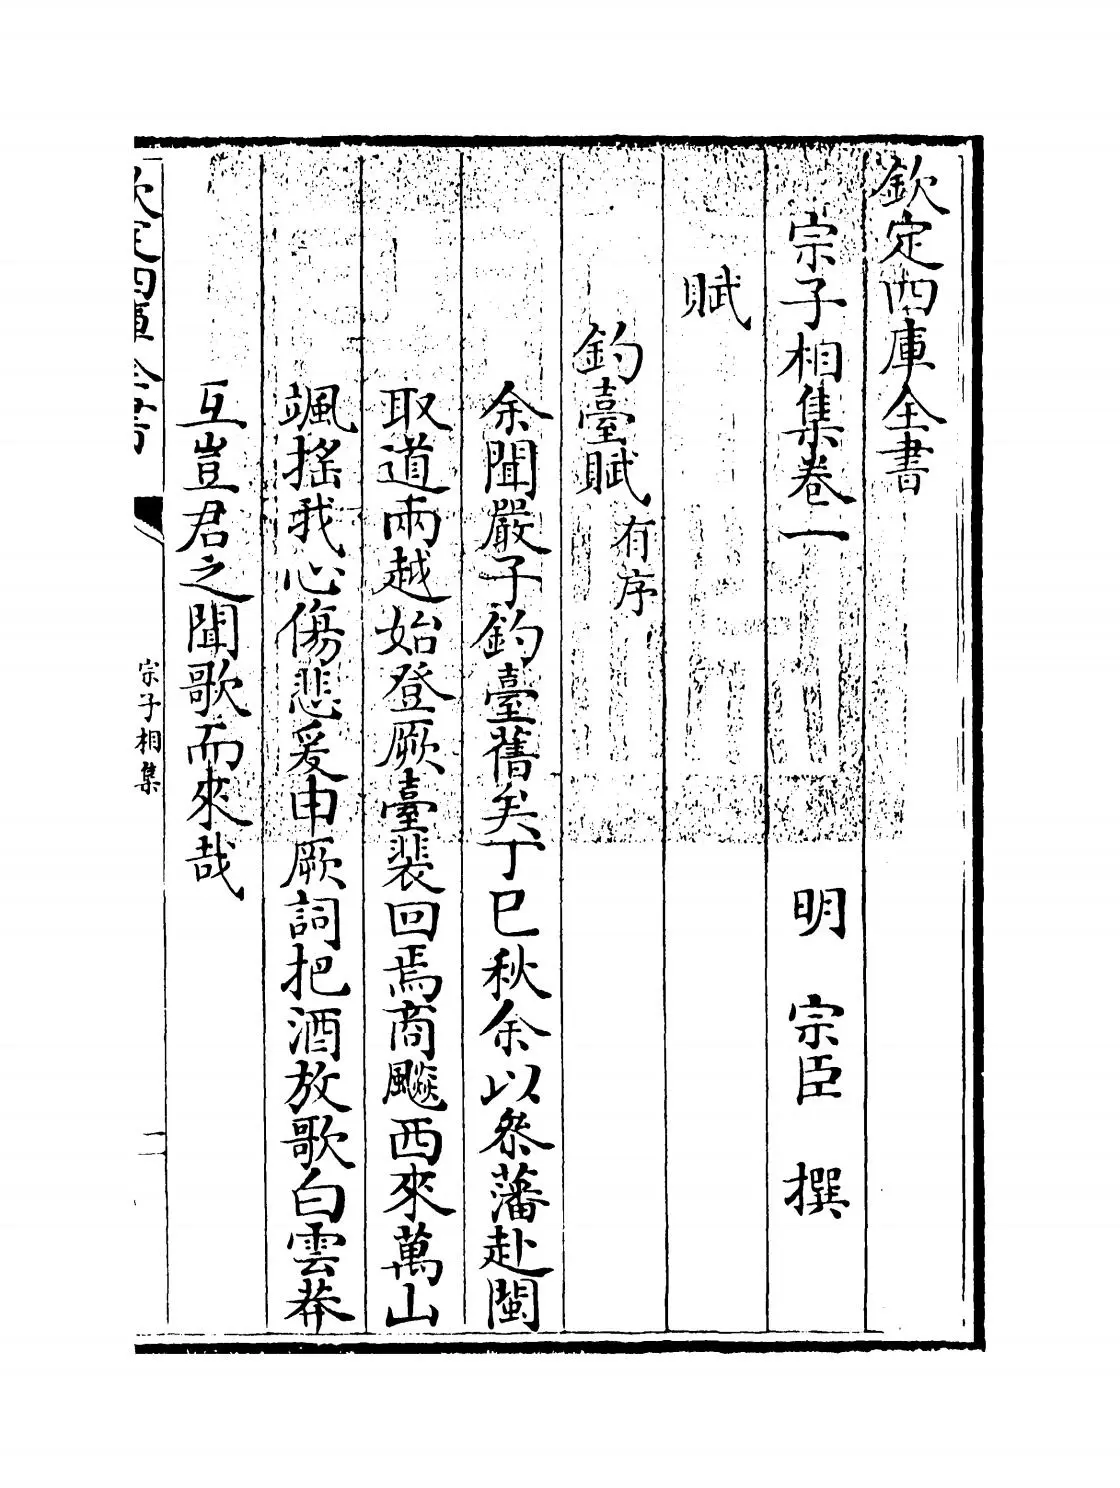 欽定四庫全書
宗子相集卷一
明 宗臣 撰
賦
釣臺賦有序
余聞嚴子釣臺舊矣丁巳秋余以叅藩赴閩
取道兩越始登厥臺裴回焉商飈西來萬山
颯搖我心傷悲爰申厥詞把酒放歌白雲莽
互豈君之聞歌而來哉
欽定四庫全書
宗子相集
二